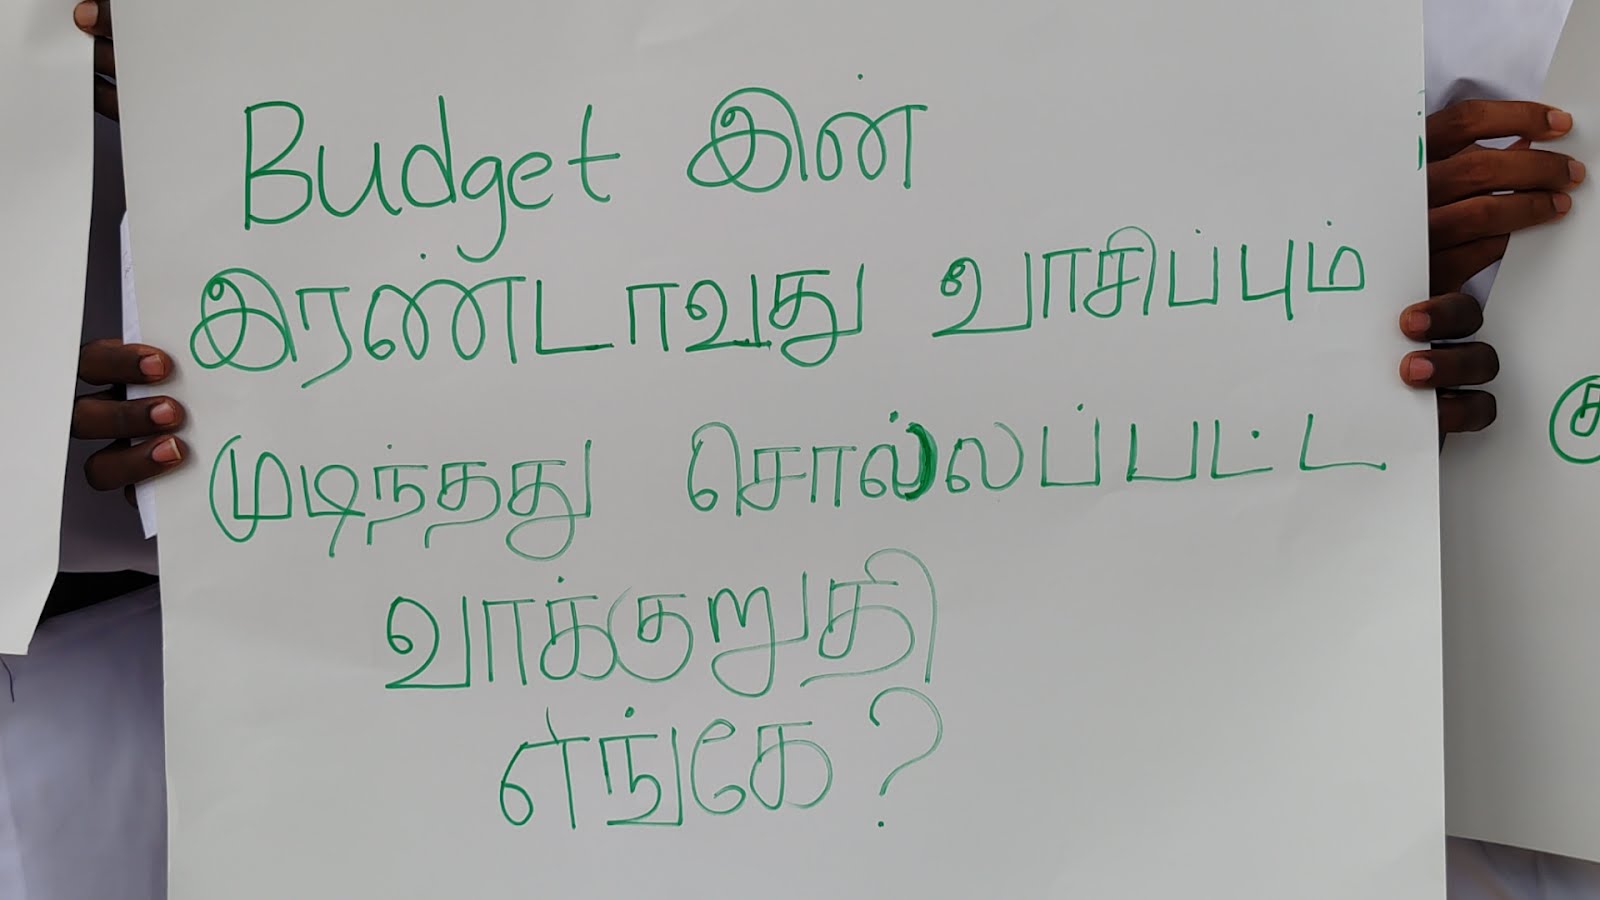 Budget இன்
இரண்டாவது வாசிப்பும்
முடிந்தது சொல்லப்பட்ட
வாக்குறுதி
எங்கே?